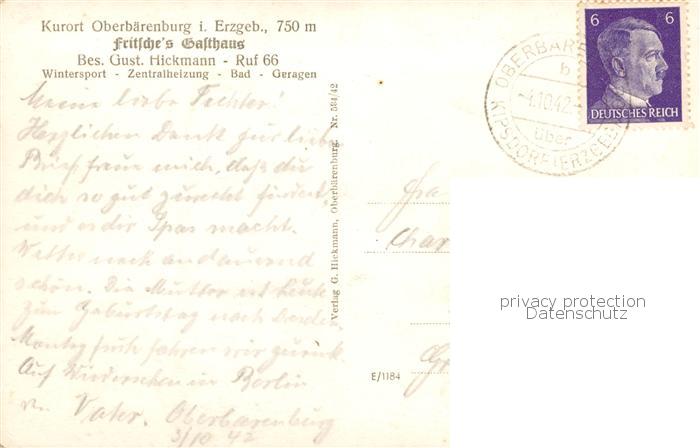 Kurort Oberbärenburg i. Erzgeb., 750 m
Fritsche's Gasthaus
Bes. Gust. Hickmann - Ruf 66
Wintersport - Zentralheizung - Bad - Geragen
Meine liebe Tochter!
Herzlichen Dank für lieb.
Brief, freue mich, daß du
dich so gut zurecht findest
und es dir Spas macht.
Wetter noch andauernd
schön. Die Mutter ist heute
zum Geburtstag nach
Montag früh fahren wir zurück.
Auf Wiedersehen in Berlin
Vater. Oberbärenburg
3/10 42
Verlag G. Hickmann, Oberbärenburg. Nr. 584/42
E/1184
6 6
DEUTSCHES REICH
b
-4.10.42.
über
KIPSDORF (ERZGEB
privacy protection
Datenschutz